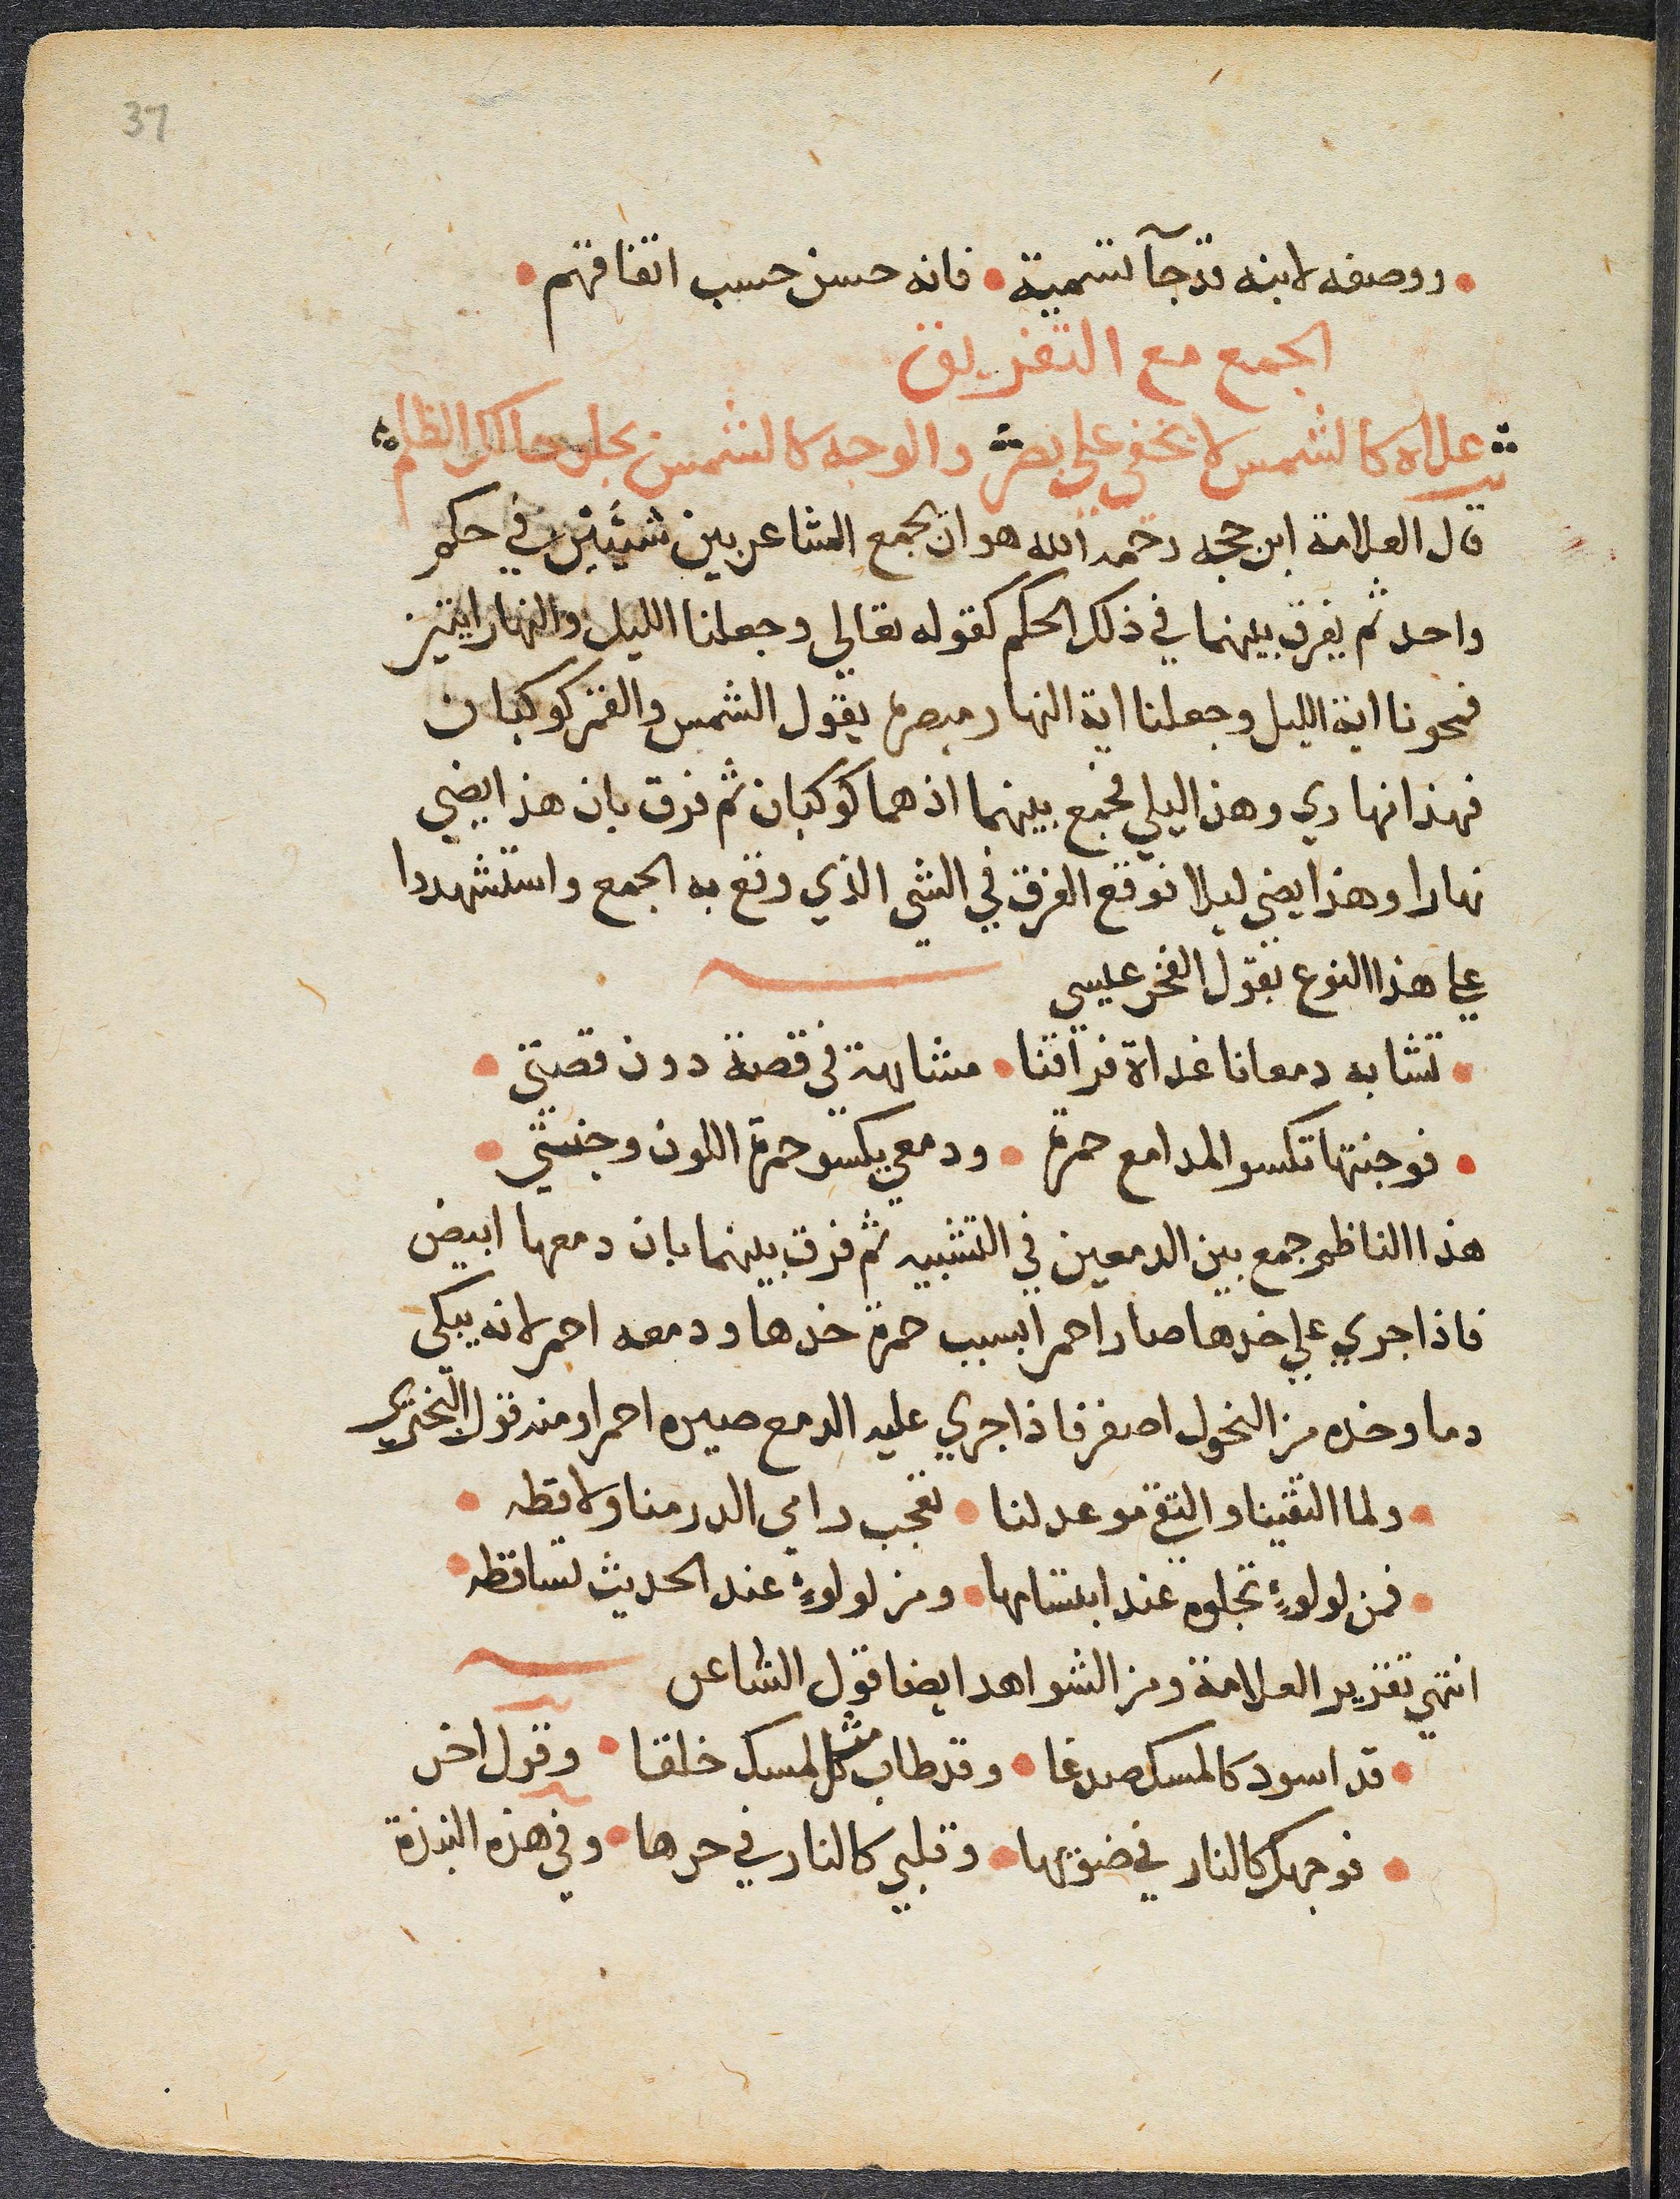 37
• ووصفه لابنه قد جآ تسمية • فانه حسن حسب اتفاقهم •
الجمع مع التفريق
علاه كالشمس لا يخفي علي بصر والوجه كالشمس يجلو حالك الظلم
قال العلامة ابن حجه رحمه الله هو ان يجمع الشاعر بين شيئين في حكم
واحد ثم يفرق بينهما في ذلك الحكم كقوله تعالي وجعلنا الليل والنهار ايتين
فمحونا اية الليل وجعلنا اية النهار مبصرة يقول الشمس والقمر كوكبان
فهذا نهاري وهذا ليلي فجمع بينهما اذ هما كوكبان ثم فرق بان هذا يضي
نهارا وهذا يضي ليلا فوقع الفرق في الشي الذي وقع به الجمع واستشهدوا
علي هذا النوع بقول الفخر عيسي
• تشابه دمعانا غداة فراقنا • مشابهة في قصة دون قصتي •
• فوجنتها تكسو المدامع حمرة • ودمعي يكسو حمرة اللون وجنتي •
هذا الناظم جمع بين الدمعين في التشبيه ثم فرق بينهما بان دمعها ابيض
فاذا جري علي خدها صار احمرا بسبب حمرة خدها ودمعه احمر لانه يبكي
دما وخده من النحول اصفر فاذا جري عليه الدمع صيره احمرا ومنه قول البختري
• ولما التقينا والتقي موعد لنا • تعجب رامي الدر منا ولاقطه •
• فمن لولوءٍ تجلوه عند ابتسامها • ومن لولوءٍ عند الحديث تساقطه •
انتهي تقرير العلامة ومن الشواهد ايضا قول الشاعر
• قد اسود كالمسك صدغا • وقد طاب مثل المسك خلقا • وقول اخر
• فوجهك كالنار في ضوئها • وقلبي كالنار في حرها • وفي هذه النبذة